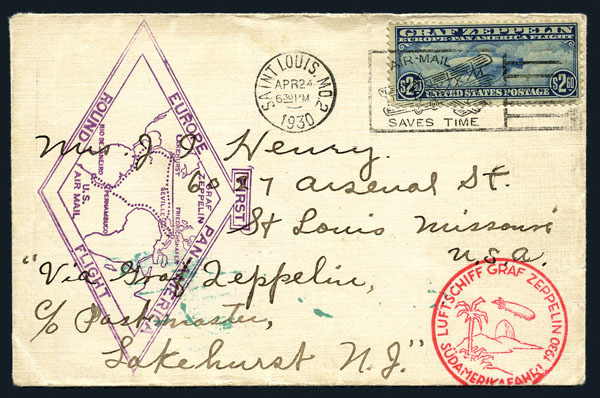 GRAF ZEPPELIN
EUROPE-PAN AMERICA FLIGHT
$2.60 UNITED STATES POSTAGE $2.60
SAINT LOUIS, MO. 2
APR 24
6 30 PM
1930
AIR-MAIL
SAVES TIME
FIRST
EUROPE PAN AMERICA
ROUND FLIGHT
RIO DE JANEIRO
LAKEHURST
GRAF ZEPPELIN
U.S. AIR MAIL
PERNAMBUCO
SEVILLE
FRIEDRICHSHAFEN
Mrs. J. I. Henry.
6027 Arsenal St.
St Louis Missouri
U.S.A.
"Via Graf Zeppelin,
c/o Postmaster,
Lakehurst N.J."
LUFTSCHIFF GRAF ZEPPELIN
SÜDAMERIKAFAHRT 1930